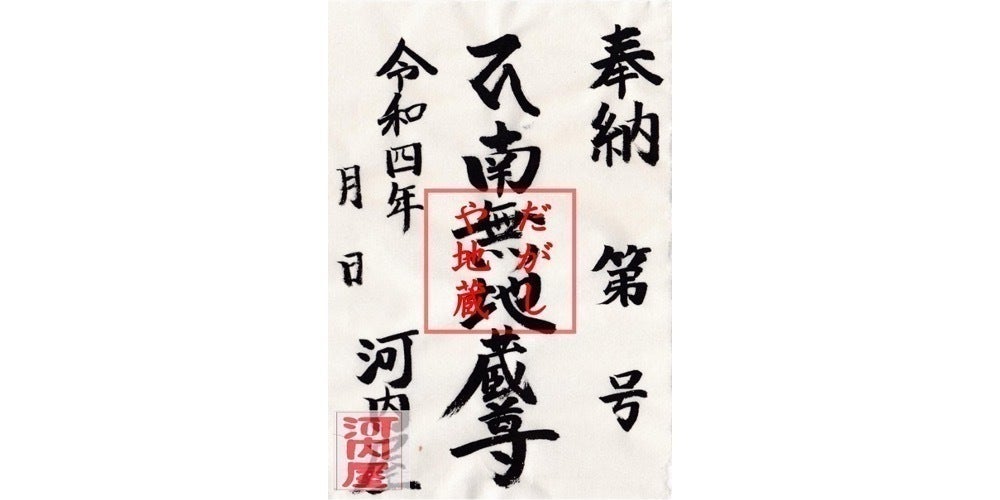 奉納 第 号
南無地蔵尊
だがし
や地蔵
令和四年
月 日
河内屋
河内屋